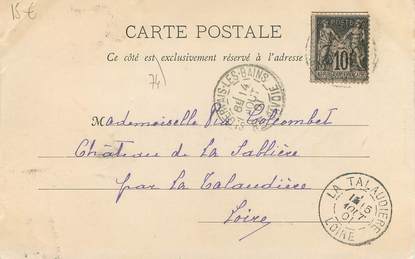 15 €
CARTE POSTALE
Ce côté est exclusivement réservé à l'adresse
POSTE
10
74
-LES-BAINS
14
AOUT
SAVOIE
Mademoiselle Colcombet
Château de la Sablière
par La Talaudière
Loire
LA TALAUDIERE
15
AOUT
01
LOIRE